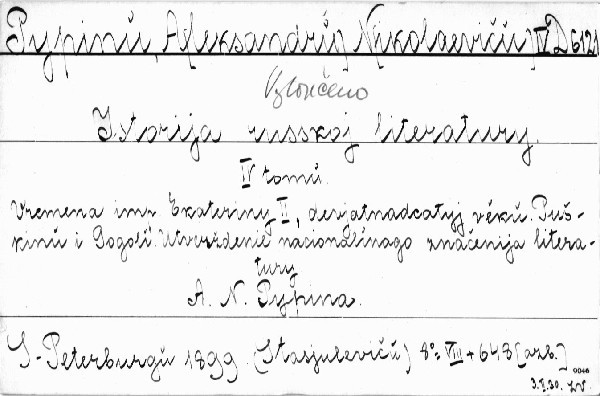 Pypinŭ, A[leksandrŭ] N[ikolaevičŭ] IV D 6121
Vyloučeno
Istorija russkoj literatury.
IV tomŭ.
Vremena imp. Ekateriny II, devjatnadcatyj věkŭ. Puš-
kinŭ i Gogolĭ. Utverždenie nacionalĭnago značenija litera-
tury
A. N. Pypina.
S-Peterburgŭ 1899. (Stasjulevičŭ) 8° VIII + 648 [arb.]
0046
3.I.30. ZV.